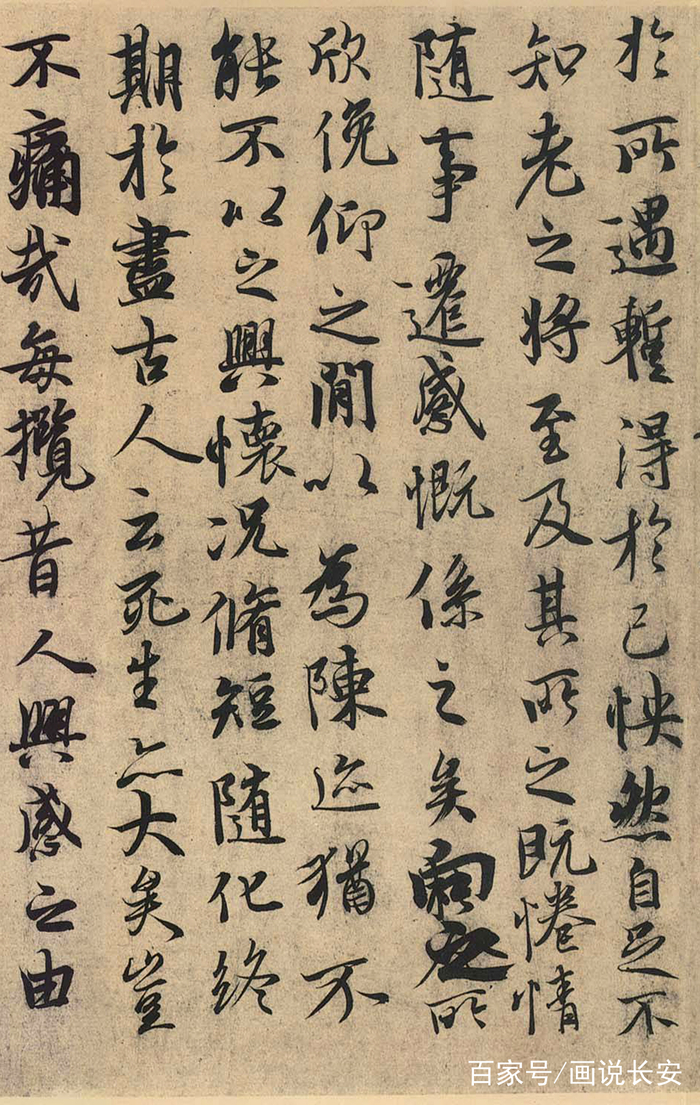 於所遇暫得於己怏然自足不
知老之將至及其所之既惓情
隨事遷感慨係之矣向之所
欣俛仰之閒以為陳迹猶不
能不以之興懷況脩短隨化終
期於盡古人云死生亦大矣豈
不痛哉每攬昔人興感之由
百家号/画说长安